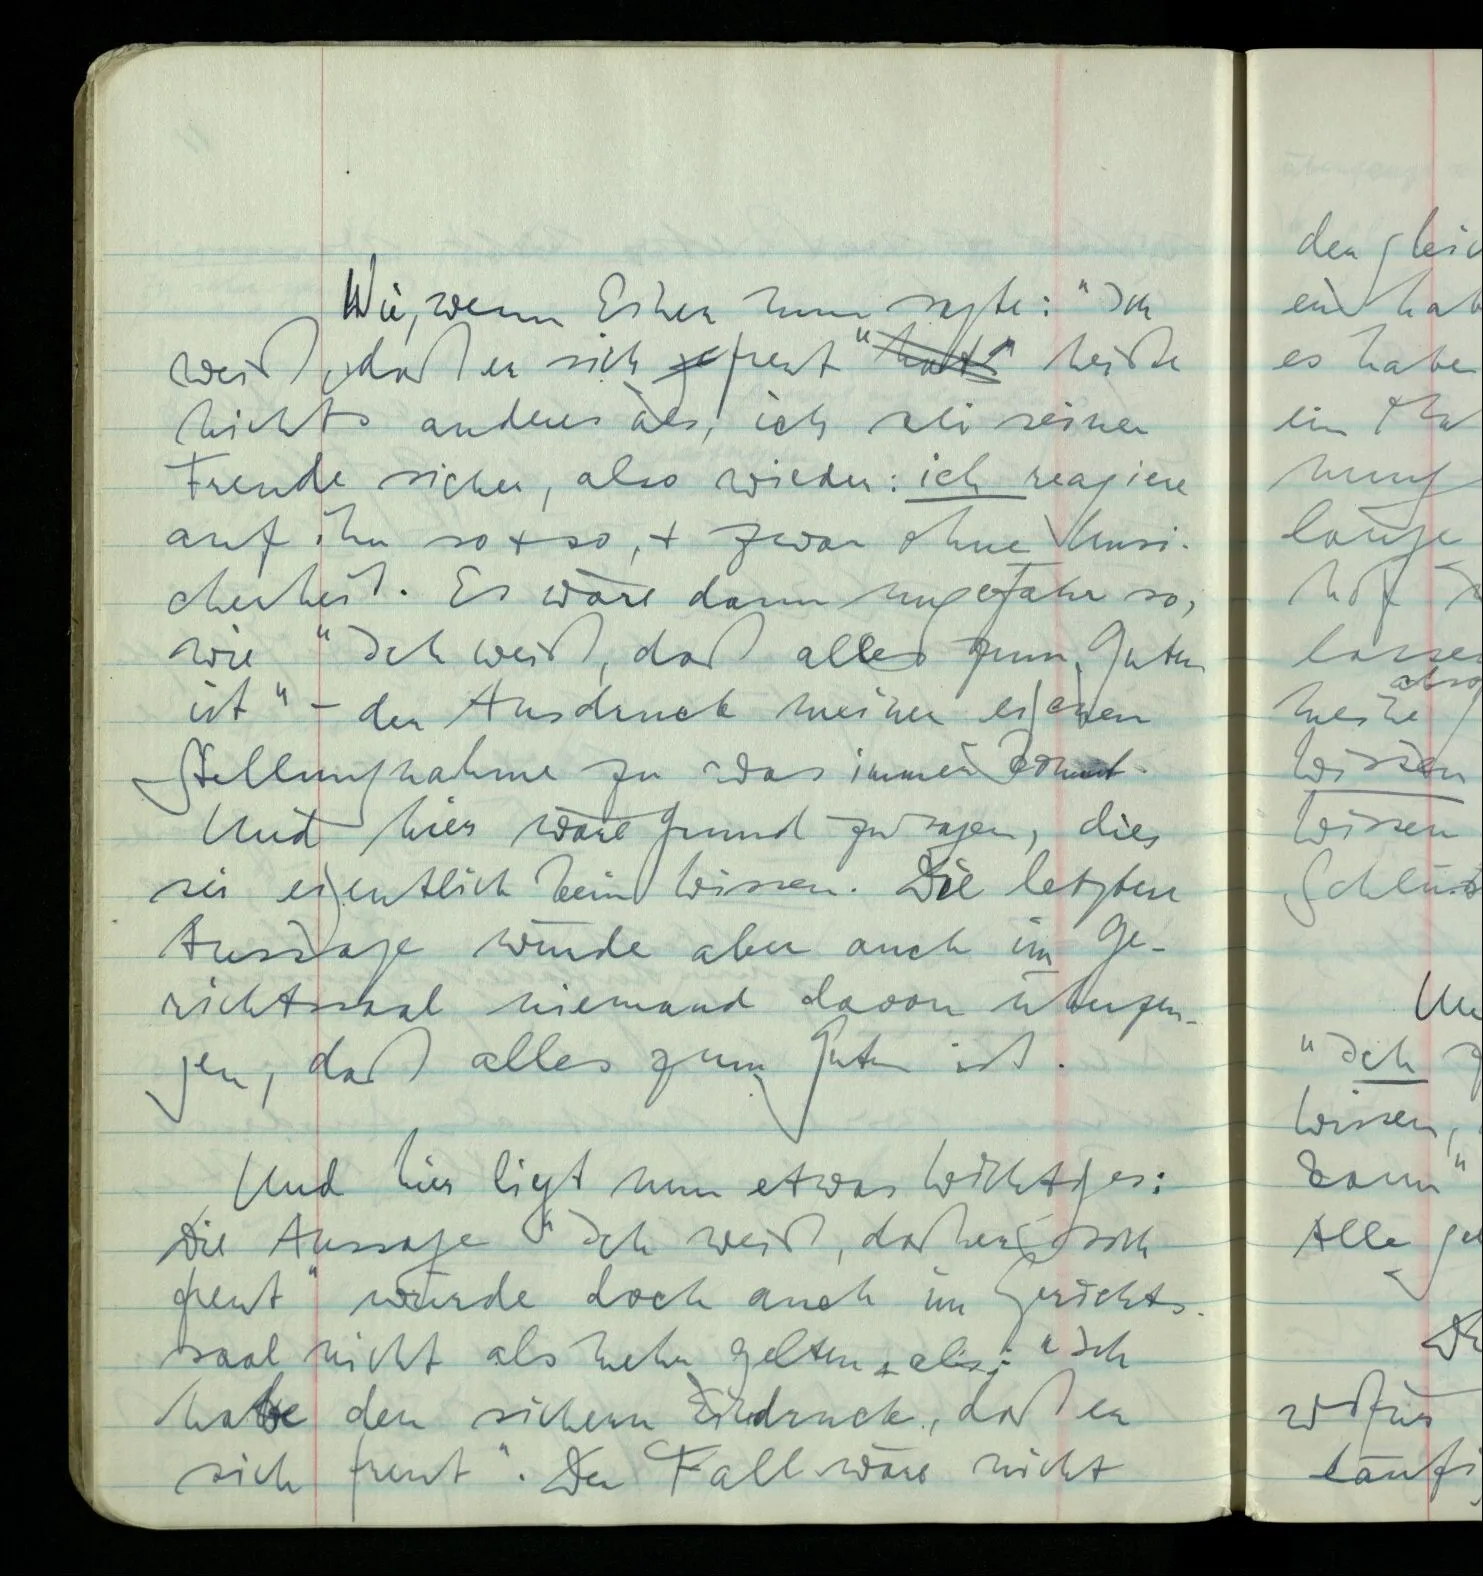 Wie, wenn Einer nun sagte: "Ich
weiß, daß er sich freut" heiße
nichts anderes als, ich sei seiner
Freude sicher, also wieder: ich reagiere
auf ihn so + so, + zwar ohne Unsi-
cherheit. Es wäre dann ungefähr so,
wie "Ich weiß, daß alles zum Guten
ist" – der Ausdruck meiner eigenen
Stellungnahme zu was immer kommt.
Und hier wäre Grund zu sagen, dies
sei eigentlich kein Wissen. Die letztere
Aussage würde aber auch im Ge-
richtssaal niemand davon überzeu-
gen, daß alles zum Guten ist.
Und hier liegt nun etwas Wichtiges:
Die Aussage "Ich weiß, daß er sich
freut" würde doch auch im Gerichts-
saal nicht als mehr gelten, als: "Ich
habe den sichern Eindruck, daß er
sich freut". Der Fall wäre nicht
ein
es haben
ein
lange
lassen
meine
Wissen
Wissen
"Ich
Wissen,
kann"
Alle
wofür